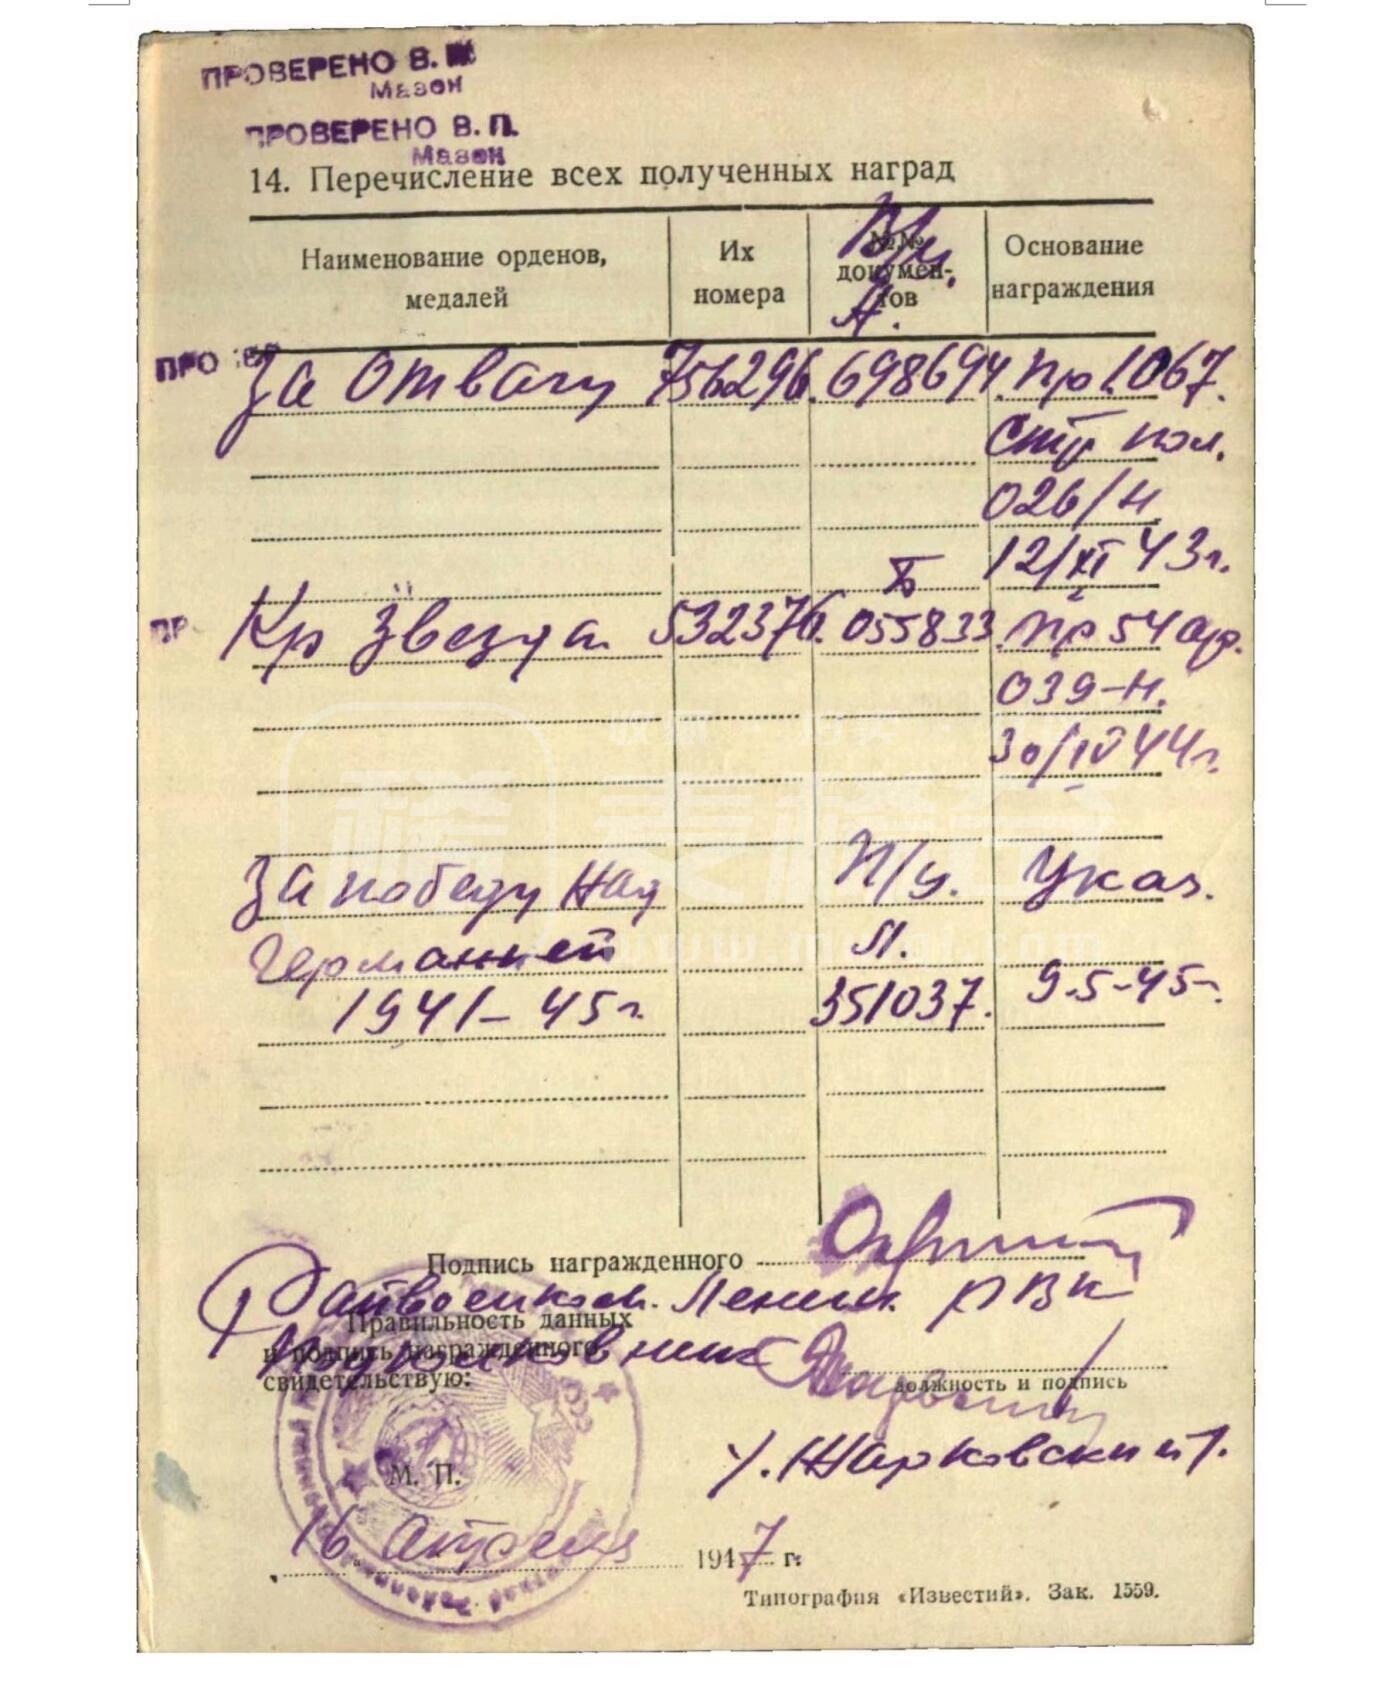 ПРОВЕРЕНО В.
Мазон
ПРОВЕРЕНО В. П.
Мазон
14. Перечисление всех полученных наград
Наименование орденов, медалей
Их номера
№№ документов
Основание награждения
В/у.
А.
ПРО
За отвагу 756296. 698694. Пр 1067.
стр пол.
026/н
12/XI 43г.
Б
ПР
Кр Звезда 532376. 055833. Пр 54 ар.
039-н.
30/IV 44г.
За победу над П/у. Указ.
Германией Л.
1941-45г. 351037. 9.5-45г.
Подпись награжденного
Райвоенком. Ленин. РВК
Правильность данных
и подпись награжденного
Подполковник
свидетельствую:
должность и подпись
/Жарковский/.
М. П.
16 апреля 1947 г.
Типография «Известий». Зак. 1559.